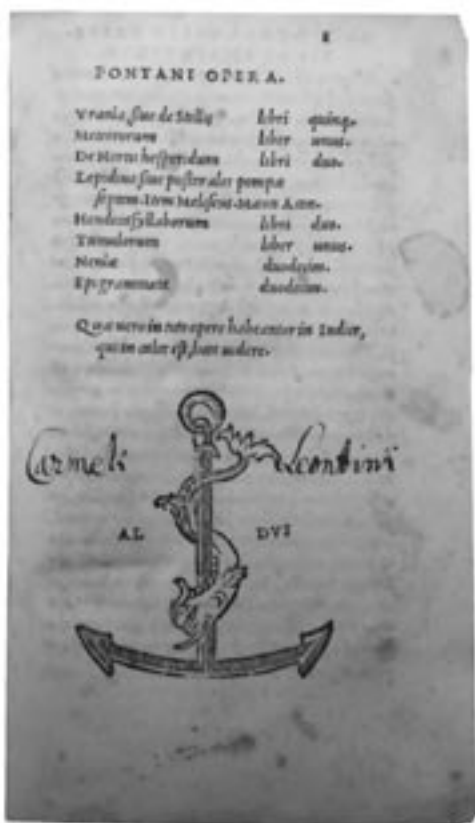 PONTANI OPERA.
Vrania, siue de Stellis libri quinq.
Meteororum liber unus.
De Hortis hesperidum libri duo.
Lepidina siue pastorales pompæ
septem. Item Meliseus. Mæon. Acon.
Hendecasyllaborum libri duo.
Tumulorum liber unus.
Neniæ duodecim.
Epigrammata duodecim.
Quæ uero in toto opere habeantur in Indice,
qui in calce est, licet uidere.
Carmeli Leontini
AL DVS